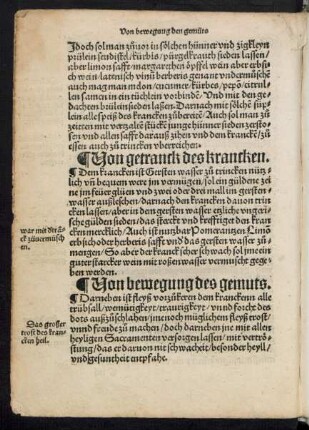 Von bewegung den gemüts
Jdoch sol man zůuor in sölchen hünner vnd zigkleyn
prülein sendistel/kürbis/pürgelkrauch sieden lassen/
aber limon safft/margarethen öpffel wein aber erbsich
wein/latenisch vinū berberis genant vndermüsche
auch mag man melon/cucumer/kürbes/pepō/citrullen
samen in ein tüchlein vorbindē. Vnd mit den gedachten
brülein sieden lassen. Darnach mit sölche süplein
alle speiß des krancken zůbereitē/ Auch sol man zů
zeitten mit verzalte stücke junge hünner sieden zerstossen
vnd allen safft darauß zihen vnd den krancke/ zů
essen auch zů trincken vberreichen.
¶Von getranck des krancken.
¶Dem krancken ist Gersten wasser zů trincken nützlich
vñ bequem were jm vernügen/sol ein güldene zeine
jm feüer glüen vnd zwei oder drei mall im gersten
wasser außleschen/darnach den krancken dauon trincken
lassen/aber in den gersten wasser etzliche vngerische
gülden sieden/das sterckt vnd krefftiget den krancken
mercklich/Auch ist nutzbar Pomerantzen. Limō
erbsich oder herberis safft vnd das gersten wasser zůmengen/
So aber der kranck seher schwach sol jme ein
guter starcker wein mit roßenwasser vermische gegeben
werden.
war mit der ack
zůuermüschen.
¶Von bewegung des gemuts.
¶Darneben ist fleyß vorzůkeren den kranckenn alle
trübsall/womütigkeyt/traurigkeyt/vnnd forcht des
dots außzůschlahen/jme noch müglichem fleyß trost/
vnnd freude zů machen/doch darneben jne mit allen
heyligen Sacramenten versorgen lassen/mit vertröstung/
das er darvon nit schwacheit/besonder heyll/
vnd gesuntheit entpfahe.
Das grosser
trost des krancken
heil.